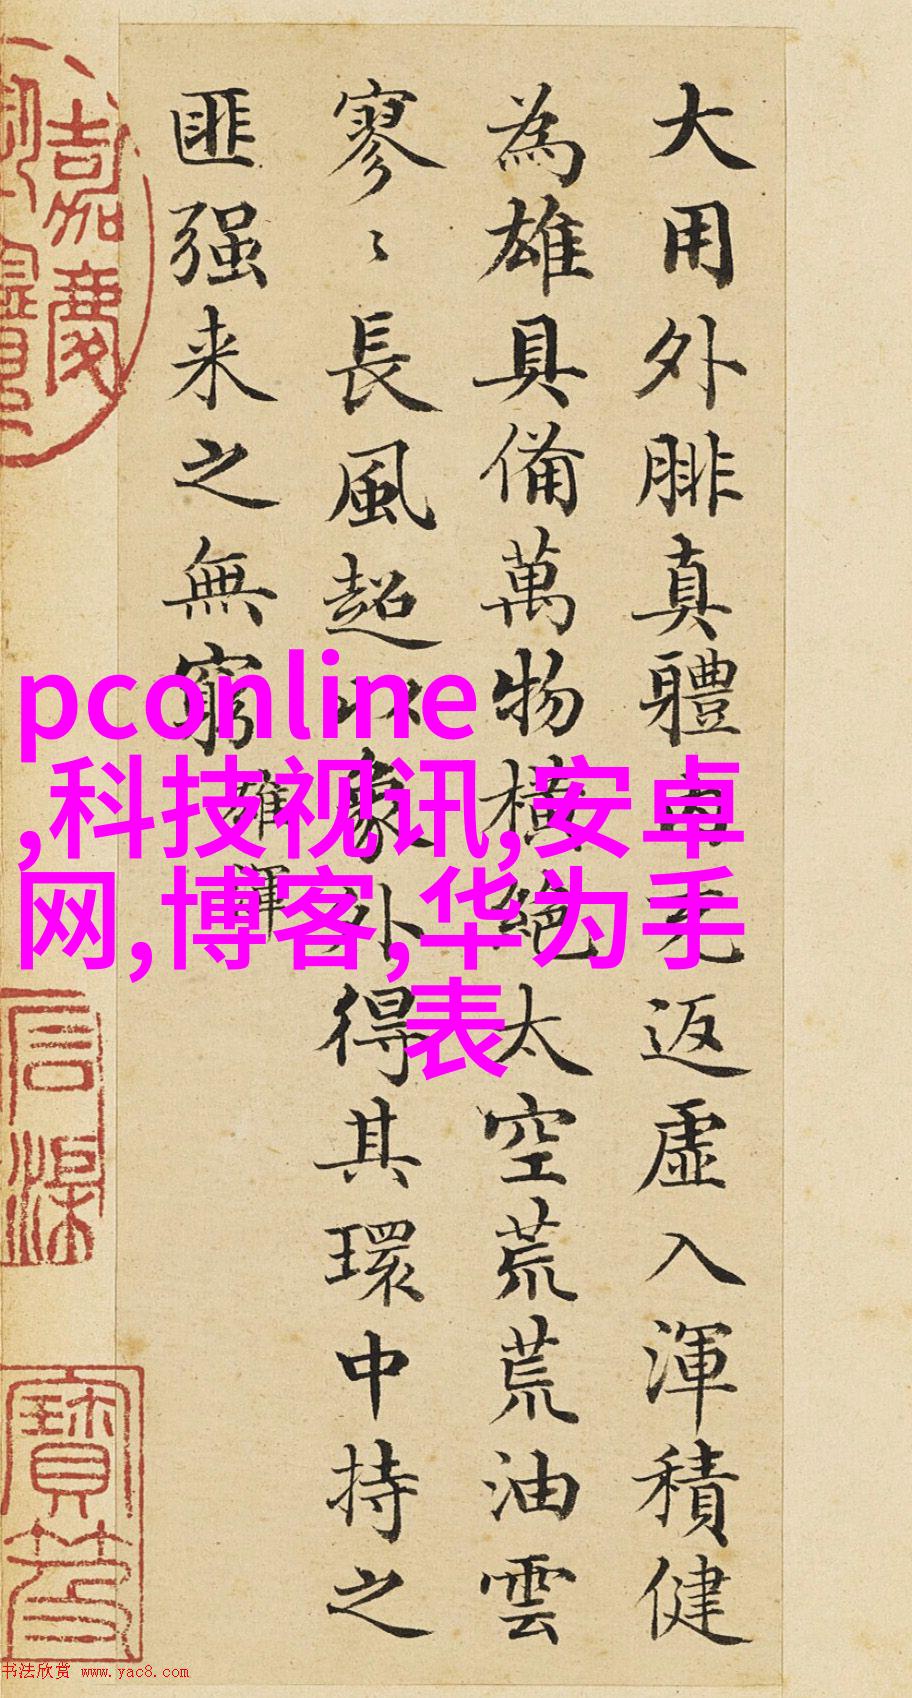 大用外腓真體内充返虛入渾積健
為雄具備萬物橫絕太空荒荒油雲
寥〻長風超以象外得其環中持之
匪强来之無窮
雄渾
嘉慶
pconline
,科技视讯,安卓
网,博客,华为手
表
书法欣赏 www.yac8.com